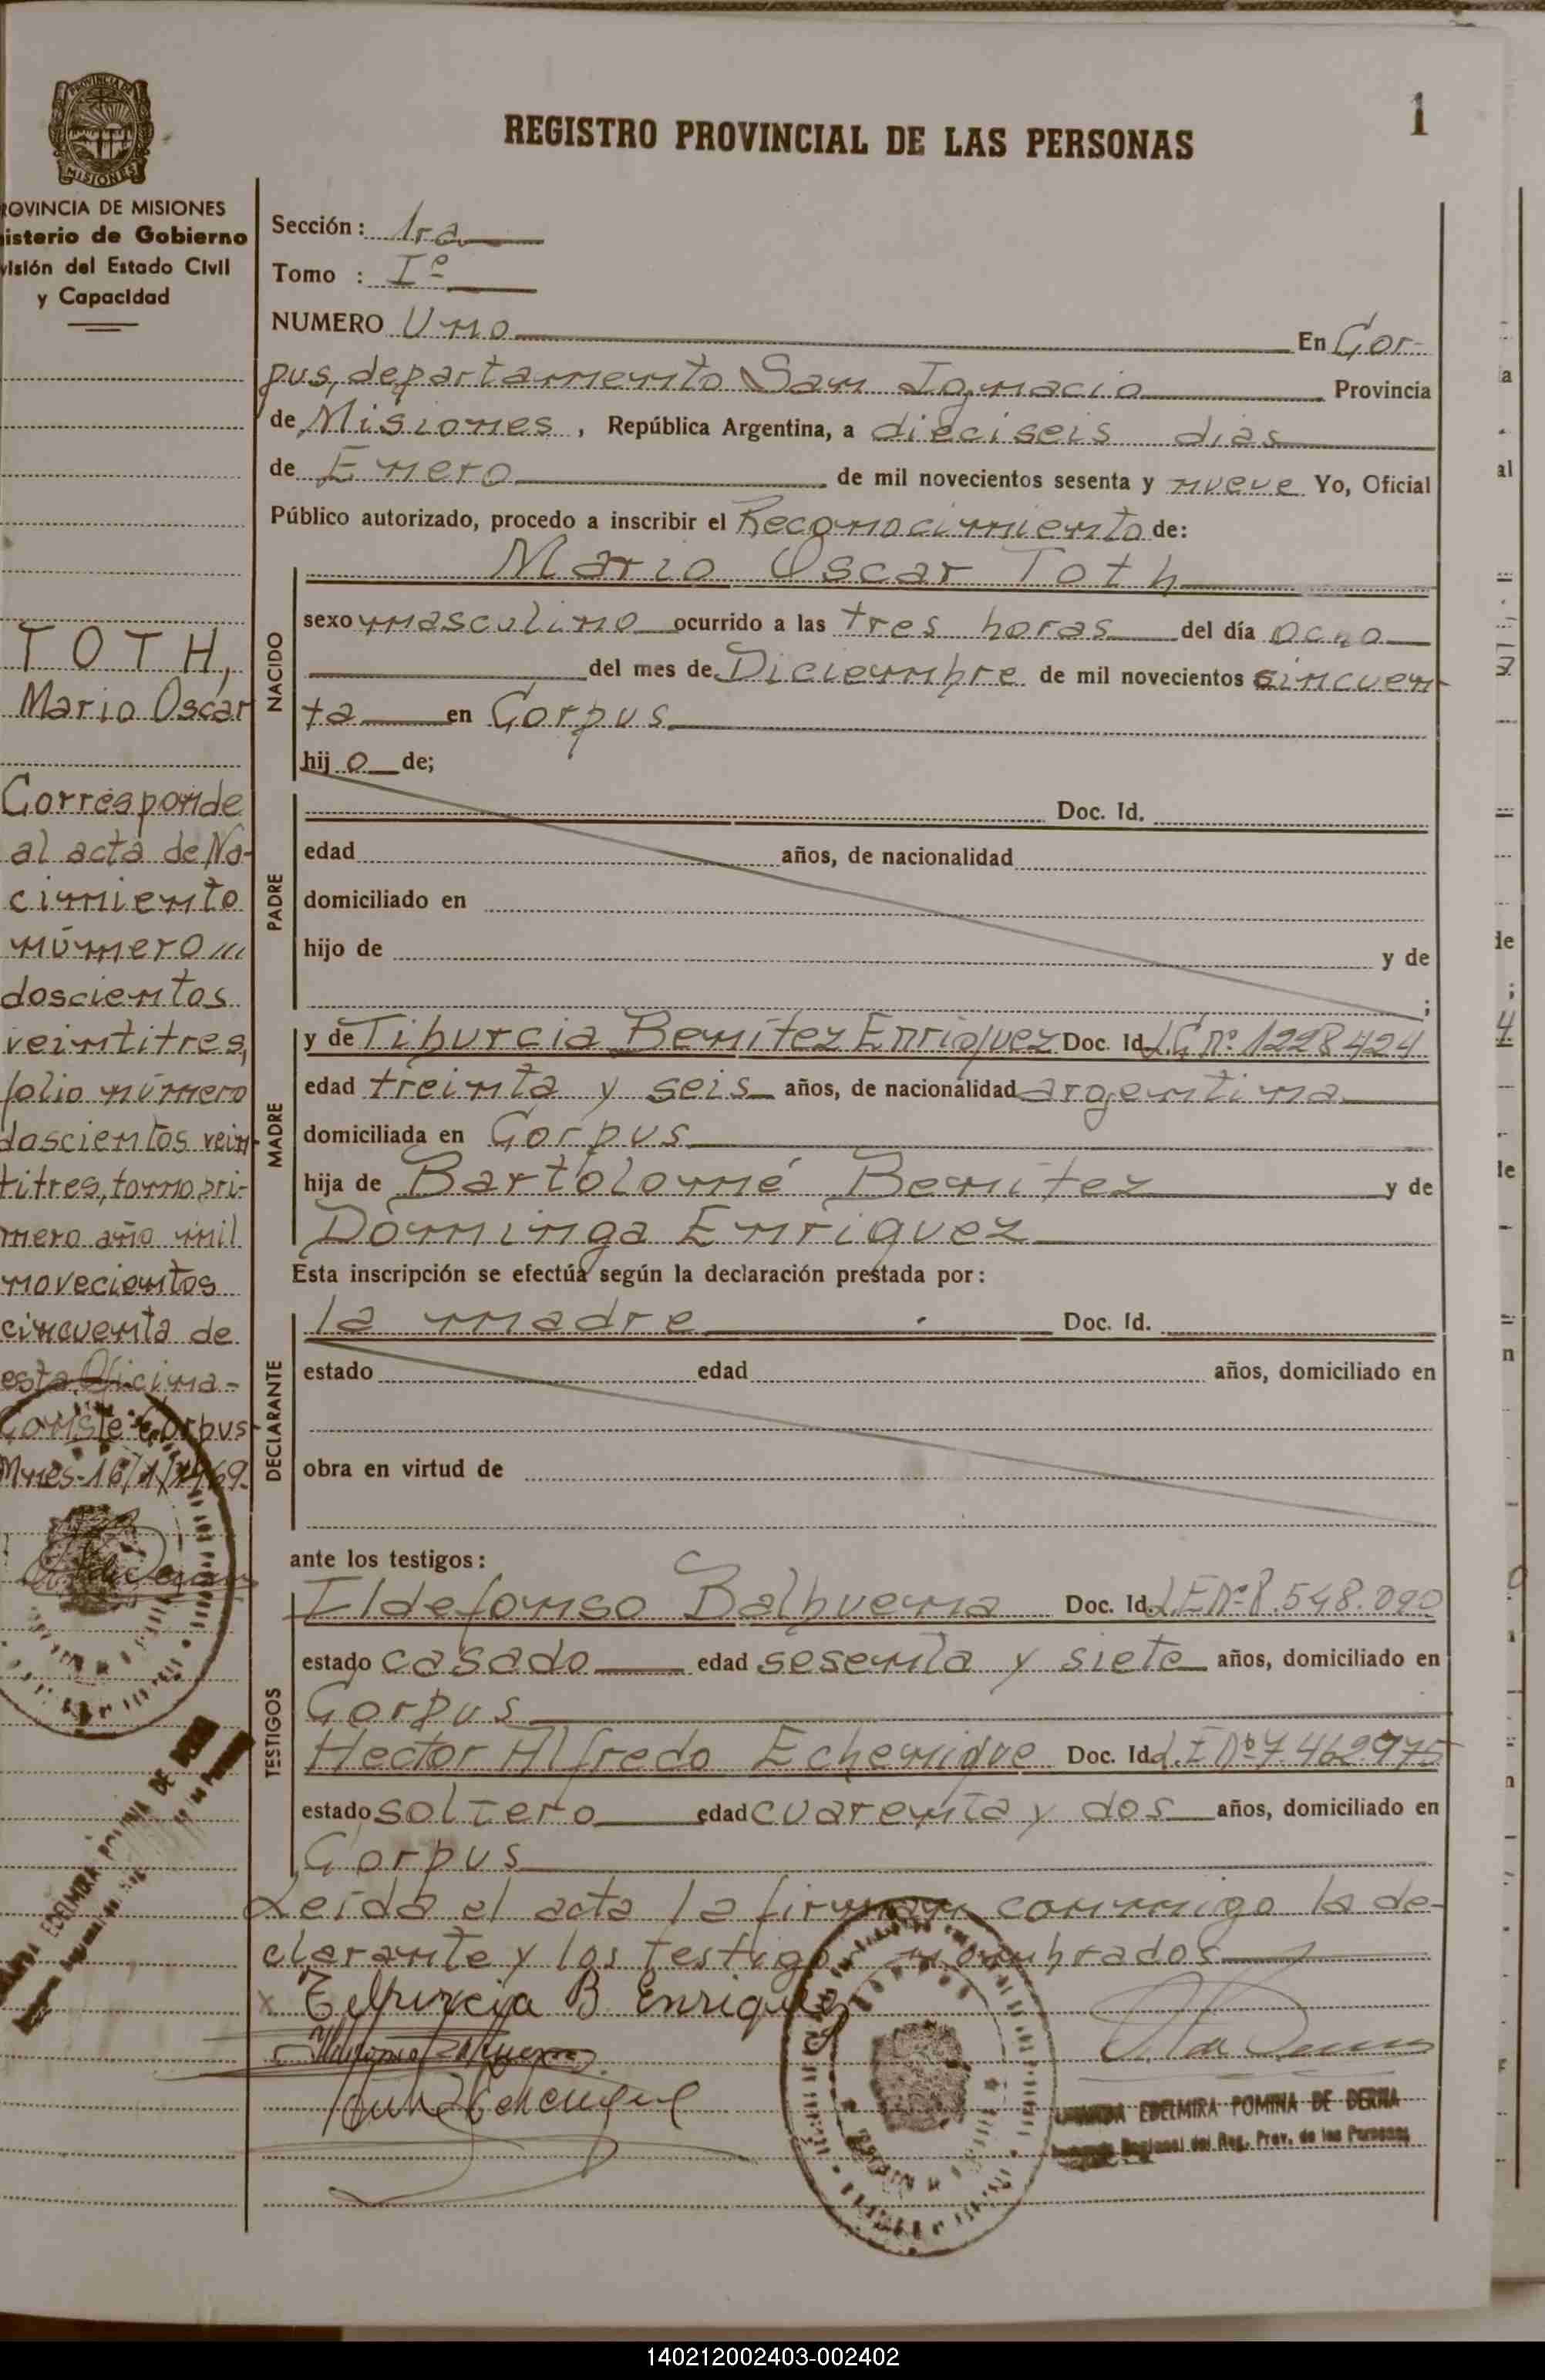 PROVINCIA DE
MISIONES
ROVINCIA DE MISIONES
isterio de Gobierno
visión del Estado Civil
y Capacidad
REGISTRO PROVINCIAL DE LAS PERSONAS
1
Sección: 1ra
Tomo : Iº
NUMERO Uno En Cor-
pus, departamento San Ignacio Provincia
de Misiones, República Argentina, a dieciseis dias
de Enero de mil novecientos sesenta y nueve Yo, Oficial
Público autorizado, procedo a inscribir el Reconocimiento de:
NACIDO
Mario Oscar Toth
sexo masculino ocurrido a las tres horas del día ocho
del mes de Diciembre de mil novecientos cincuen
ta en Corpus
hijo de;
PADRE
Doc. Id.
edad años, de nacionalidad
domiciliado en
hijo de y de
;
MADRE
y de Tiburcia Benítez Enriquez Doc. Id. L.C. nº 1228424
edad treinta y seis años, de nacionalidad argentina
domiciliada en Corpus
hija de Bartolomé Benitez y de
Dominga Enriquez
Esta inscripción se efectúa según la declaración prestada por:
DECLARANTE
la madre Doc. Id.
estado edad años, domiciliado en
obra en virtud de
ante los testigos:
TESTIGOS
Ildefonso Balbuena Doc. Id. L.E Nº 548.090
estado casado edad sesenta y siete años, domiciliado en
Corpus
Hector Alfredo Echenique Doc. Id. L.E Nº 7.462975
estado soltero edad cuarenta y dos años, domiciliado en
Corpus
Leída el acta la firman conmigo la de-
clarante y los testigos nombrados
x Tiburcia B Enriquez
EDELMIRA POMINA DE DERNA
Regional del Reg. Prov. de las Personas
TOTH,
Mario Oscar
Corresponde
al acta de Na-
cimiento
número ///
doscientos
veintitres,
folio número
doscientos vein
titres, tomo pri-
mero año mil
novecientos
cincuenta de
esta Oficina-
Conste Corpus
Mnes-16/1/1969.
EDELMIRA POMINA DE DERNA
140212002403-002402